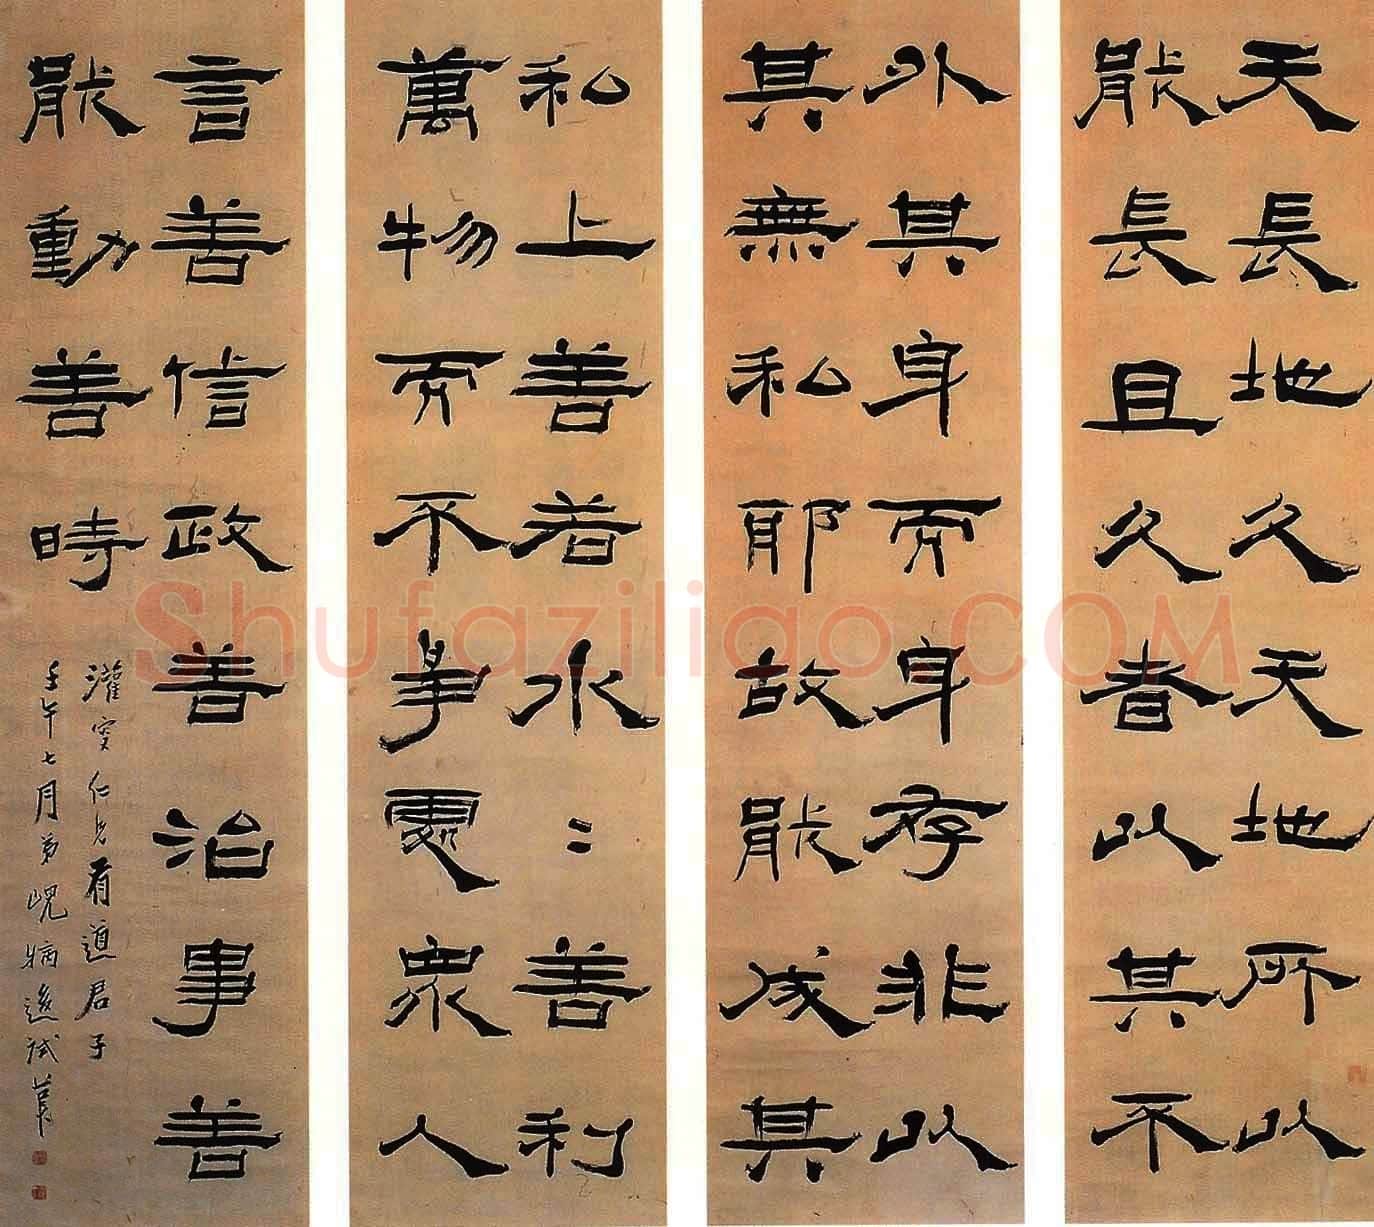 天長地久天地所以
能長且久者以其不
外其身而身存非以
其無私耶故能成其
私上善若水〻善利
萬物而不爭處衆人
言善信政善治事善
能動善時
灌仁兄有道君子
壬午七月弟峴病後試筆
Shufaziliao.COM